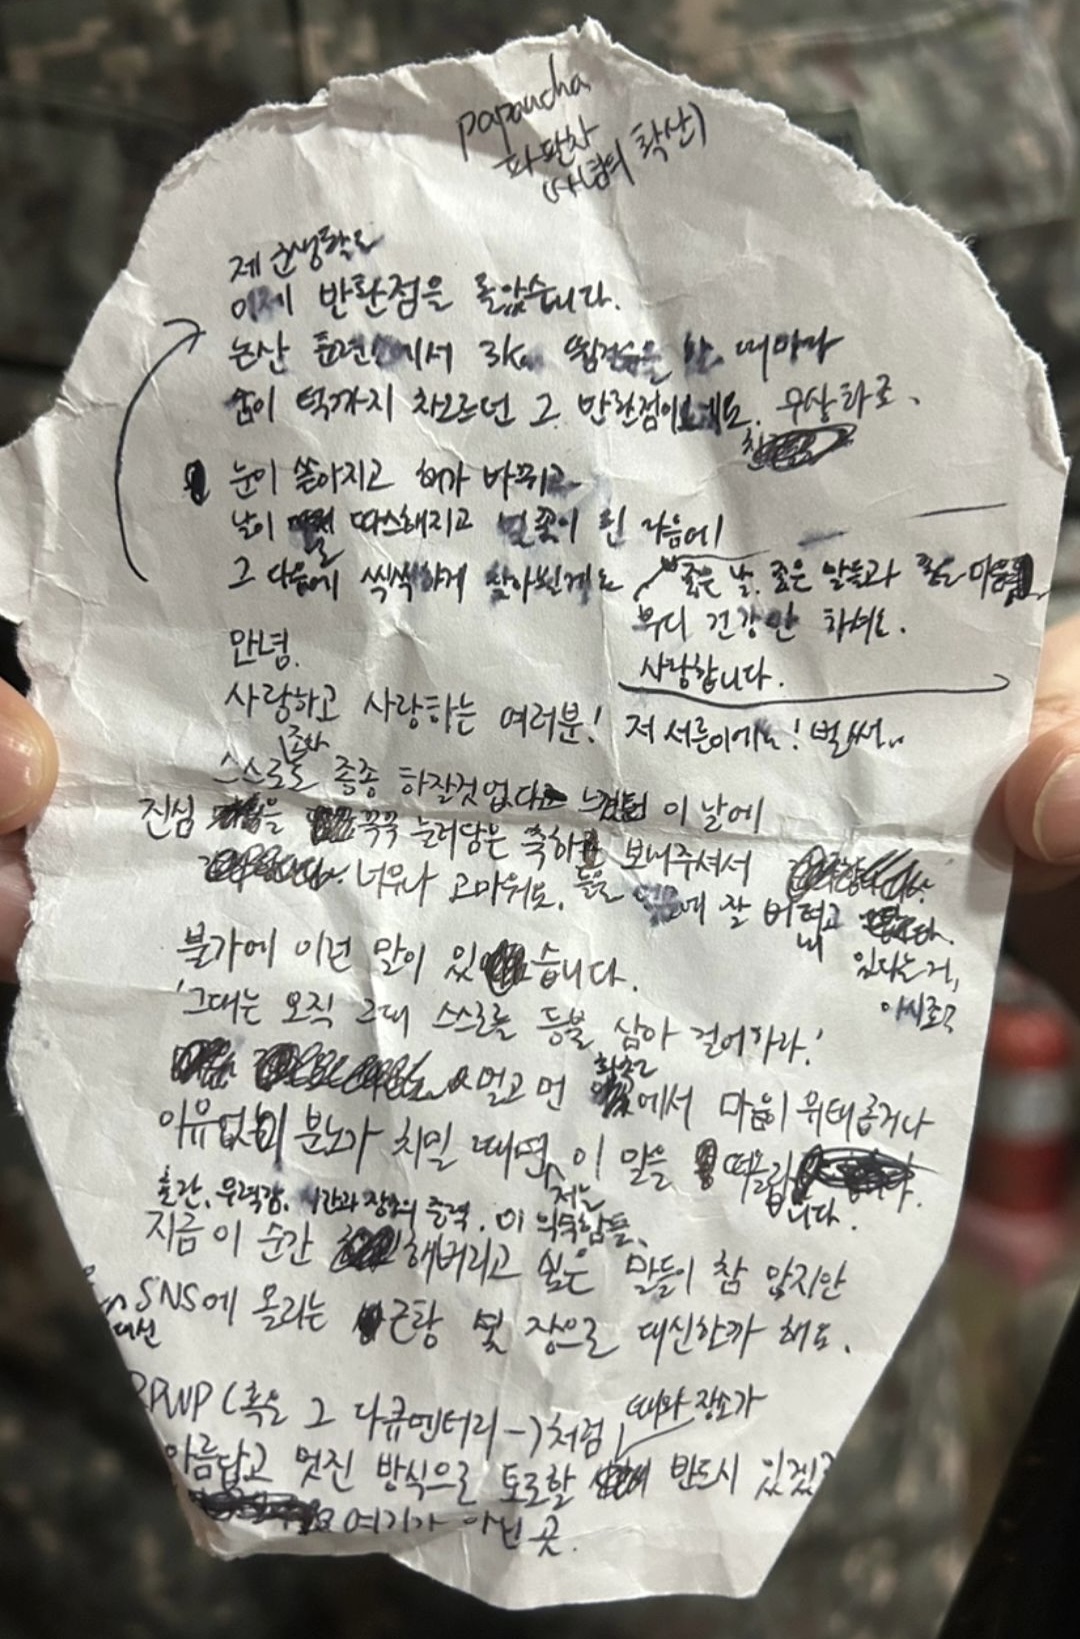 papancha
파판차
(사념의 확산)
제 군생활도
이제 반환점을 돌았습니다.
논산 훈련소에서 3km 뜀걸음을 할 때마다
숨이 턱까지 차오르던 그 반환점이네요.
눈이 쏟아지고 해가 바뀌고
날이 따스해지고 벚꽃이 핀 다음에
그 다음에 씩씩하게 찾아뵐게요
좋은 날, 좋은 말들과 마음
부디 건강만 하셔요.
사랑합니다.
안녕.
사랑하고 사랑하는 여러분! 저 서른이에요! 벌써..
조차
스스로 종종 하잘것없다 느꼈던 이 날에
진심을 꾹꾹 눌러담은 축하를 보내주셔서
너무나 고마워요. 잘 버텨내고
있다는 거,
아시죠?
불가에 이런 말이 있습니다.
'그대는 오직 그대 스스로를 등불 삼아 걸어가라.'
머멀고 먼 화천에서 마음이 위태롭거나
이유없이 분노가 치밀 때면, 저는 이 말을 떠올립니다.
혼란, 무력감, 시간과 장소의 중력, 이 의숙함들,
지금 이 순간 해버리고 싶은 말들이 참 많지만
SNS에 올리는 몇 장으로 대신할까 해요.
대신
RPWP (혹은 그 다큐멘터리-)처럼
때와 장소가
아름답고 멋진 방식으로 토로할 반드시 있겠죠
여기가 아닌 곳.